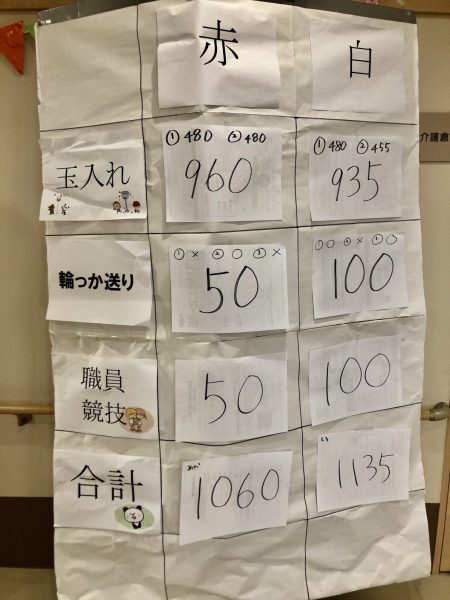 赤 白
① 480 ② 480 ① 480 ② 455
玉入れ 960 935
① × ② ○ ③ × ① ○ ② × ③ ○
輪っか送り 50 100
職員
競技 50 100
あか しろ
合計 1060 1135
介護倉